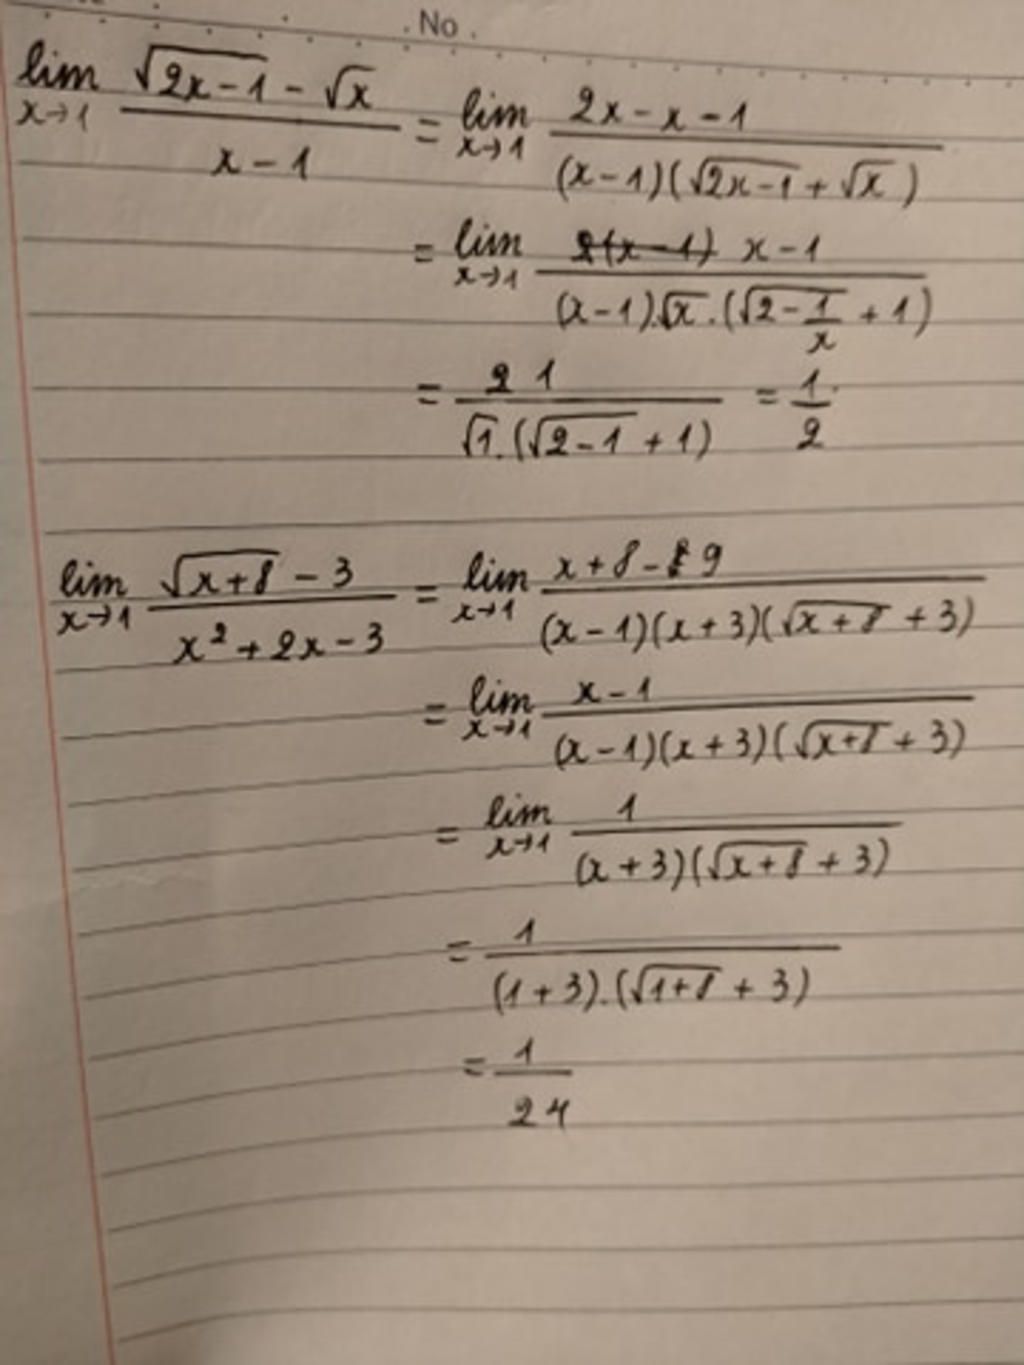 No.
lim x→1 (√(2x-1) - √x)/(x-1) = lim x→1 (2x-x-1)/((x-1)(√(2x-1) + √x))
= lim x→1 (x-1)/((x-1).√x.(√(2-1/x) + 1))
= 1/(√1.(√(2-1) + 1)) = 1/2
lim x→1 (√(x+8) - 3)/(x²+2x-3) = lim x→1 (x+8-9)/((x-1)(x+3)(√(x+8) + 3))
= lim x→1 (x-1)/((x-1)(x+3)(√(x+8) + 3))
= lim x→1 1/((x+3)(√(x+8) + 3))
= 1/((1+3).(√(1+8) + 3))
= 1/24